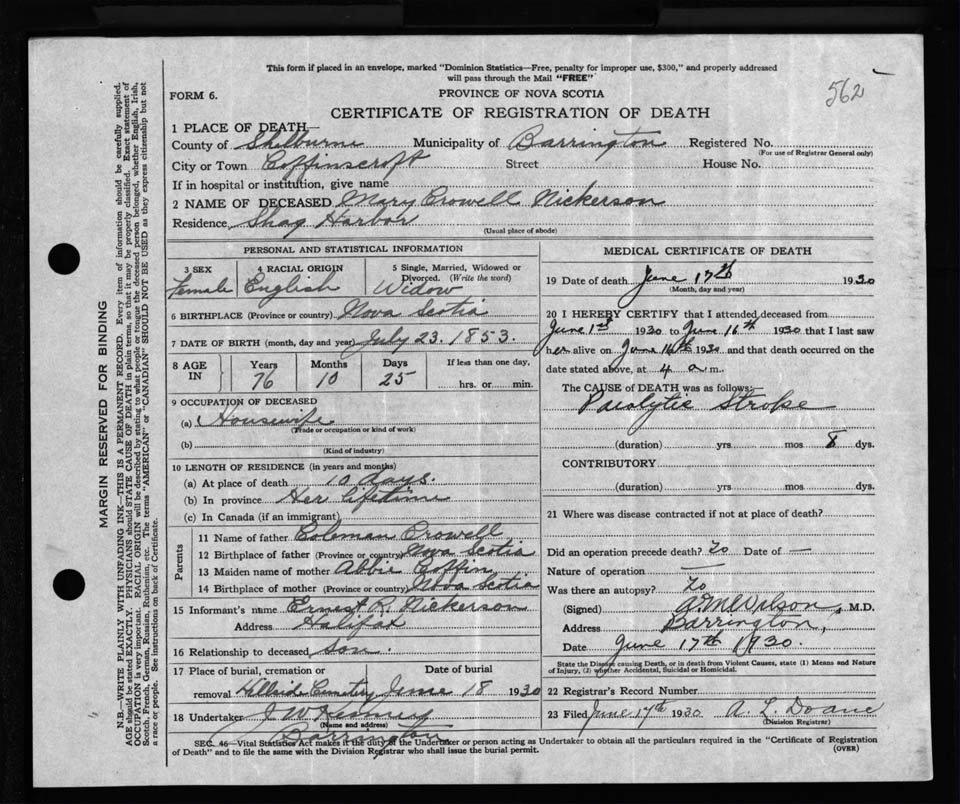 This form if placed in an envelope, marked "Dominion Statistics—Free, penalty for improper use, $300," and properly addressed
will pass through the Mail "FREE"
562
FORM 6.
PROVINCE OF NOVA SCOTIA
CERTIFICATE OF REGISTRATION OF DEATH
1 PLACE OF DEATH—
County of Shelburne Municipality of Barrington Registered No.
(For use of Registrar General only)
City or Town Coffinscroft Street House No.
If in hospital or institution, give name
2 NAME OF DECEASED Mary Crowell Nickerson
Residence Shag Harbor
(Usual place of abode)
PERSONAL AND STATISTICAL INFORMATION
3 SEX 4 RACIAL ORIGIN 5 Single, Married, Widowed or Divorced. (Write the word)
Female English Widow
6 BIRTHPLACE (Province or country) Nova Scotia
7 DATE OF BIRTH (month, day and year) July 23. 1853.
8 AGE IN Years Months Days If less than one day,
76 10 25 hrs. or min.
9 OCCUPATION OF DECEASED
(a) Housewife
(Trade or occupation or kind of work)
(b)
(Kind of industry)
10 LENGTH OF RESIDENCE (in years and months)
(a) At place of death 10 days.
(b) In province Her lifetime
(c) In Canada (if an immigrant)
Parents
11 Name of father Coleman Crowell
12 Birthplace of father (Province or country) Nova Scotia
13 Maiden name of mother Abbie Coffin
14 Birthplace of mother (Province or country) Nova Scotia
15 Informant's name Ernest R. Nickerson
Address Halifax
16 Relationship to deceased son.
17 Place of burial, cremation or Date of burial
removal Hillside Cemetery June 18 1930
18 Undertaker J W
(Name and address)
Barrington
MEDICAL CERTIFICATE OF DEATH
19 Date of death June 17th 1930
(Month, day and year)
20 I HEREBY CERTIFY that I attended deceased from
June 1st 1930 to June 16th 1930 that I last saw
her alive on June 16th 1930 and that death occurred on the
date stated above, at 4 a m.
The CAUSE of DEATH was as follows:—
Paralytic Stroke
(duration) yrs mos 8 dys.
CONTRIBUTORY
(duration) yrs mos dys.
21 Where was disease contracted if not at place of death?
Did an operation precede death? No Date of —
Nature of operation —
Was there an autopsy? No
(Signed) Wilson, M.D.
Address Barrington,
Date June 17th 1930.
State the Disease causing Death, or in death from Violent Causes, state (1) Means and Nature
of Injury, (2) whether Accidental, Suicidal or Homicidal.
22 Registrar's Record Number
23 Filed June 17th 1930 A. L. Doane
(Division Registrar)
SEC. 46—Vital Statistics Act makes it the duty of the Undertaker or person acting as Undertaker to obtain all the particulars required in the "Certificate of Registration
of Death" and to file the same with the Division Registrar who shall issue the burial permit.
(OVER)
MARGIN RESERVED FOR BINDING
N.B.—WRITE PLAINLY WITH UNFADING INK—THIS IS A PERMANENT RECORD. Every item of information should be carefully supplied.
AGE should be stated EXACTLY. PHYSICIANS should STATE CAUSE OF DEATH in plain terms, so that it may be properly classified. Exact statement of
OCCUPATION is very important. RACIAL ORIGIN will be described by stating to what people or tongue the deceased person belonged, whether English, Irish,
Scotch, French, German, Russian, Ruthenian, etc. The terms "AMERICAN" or "CANADIAN" SHOULD NOT BE USED as they express citizenship but not
a race or people. See instructions on back of Certificate.